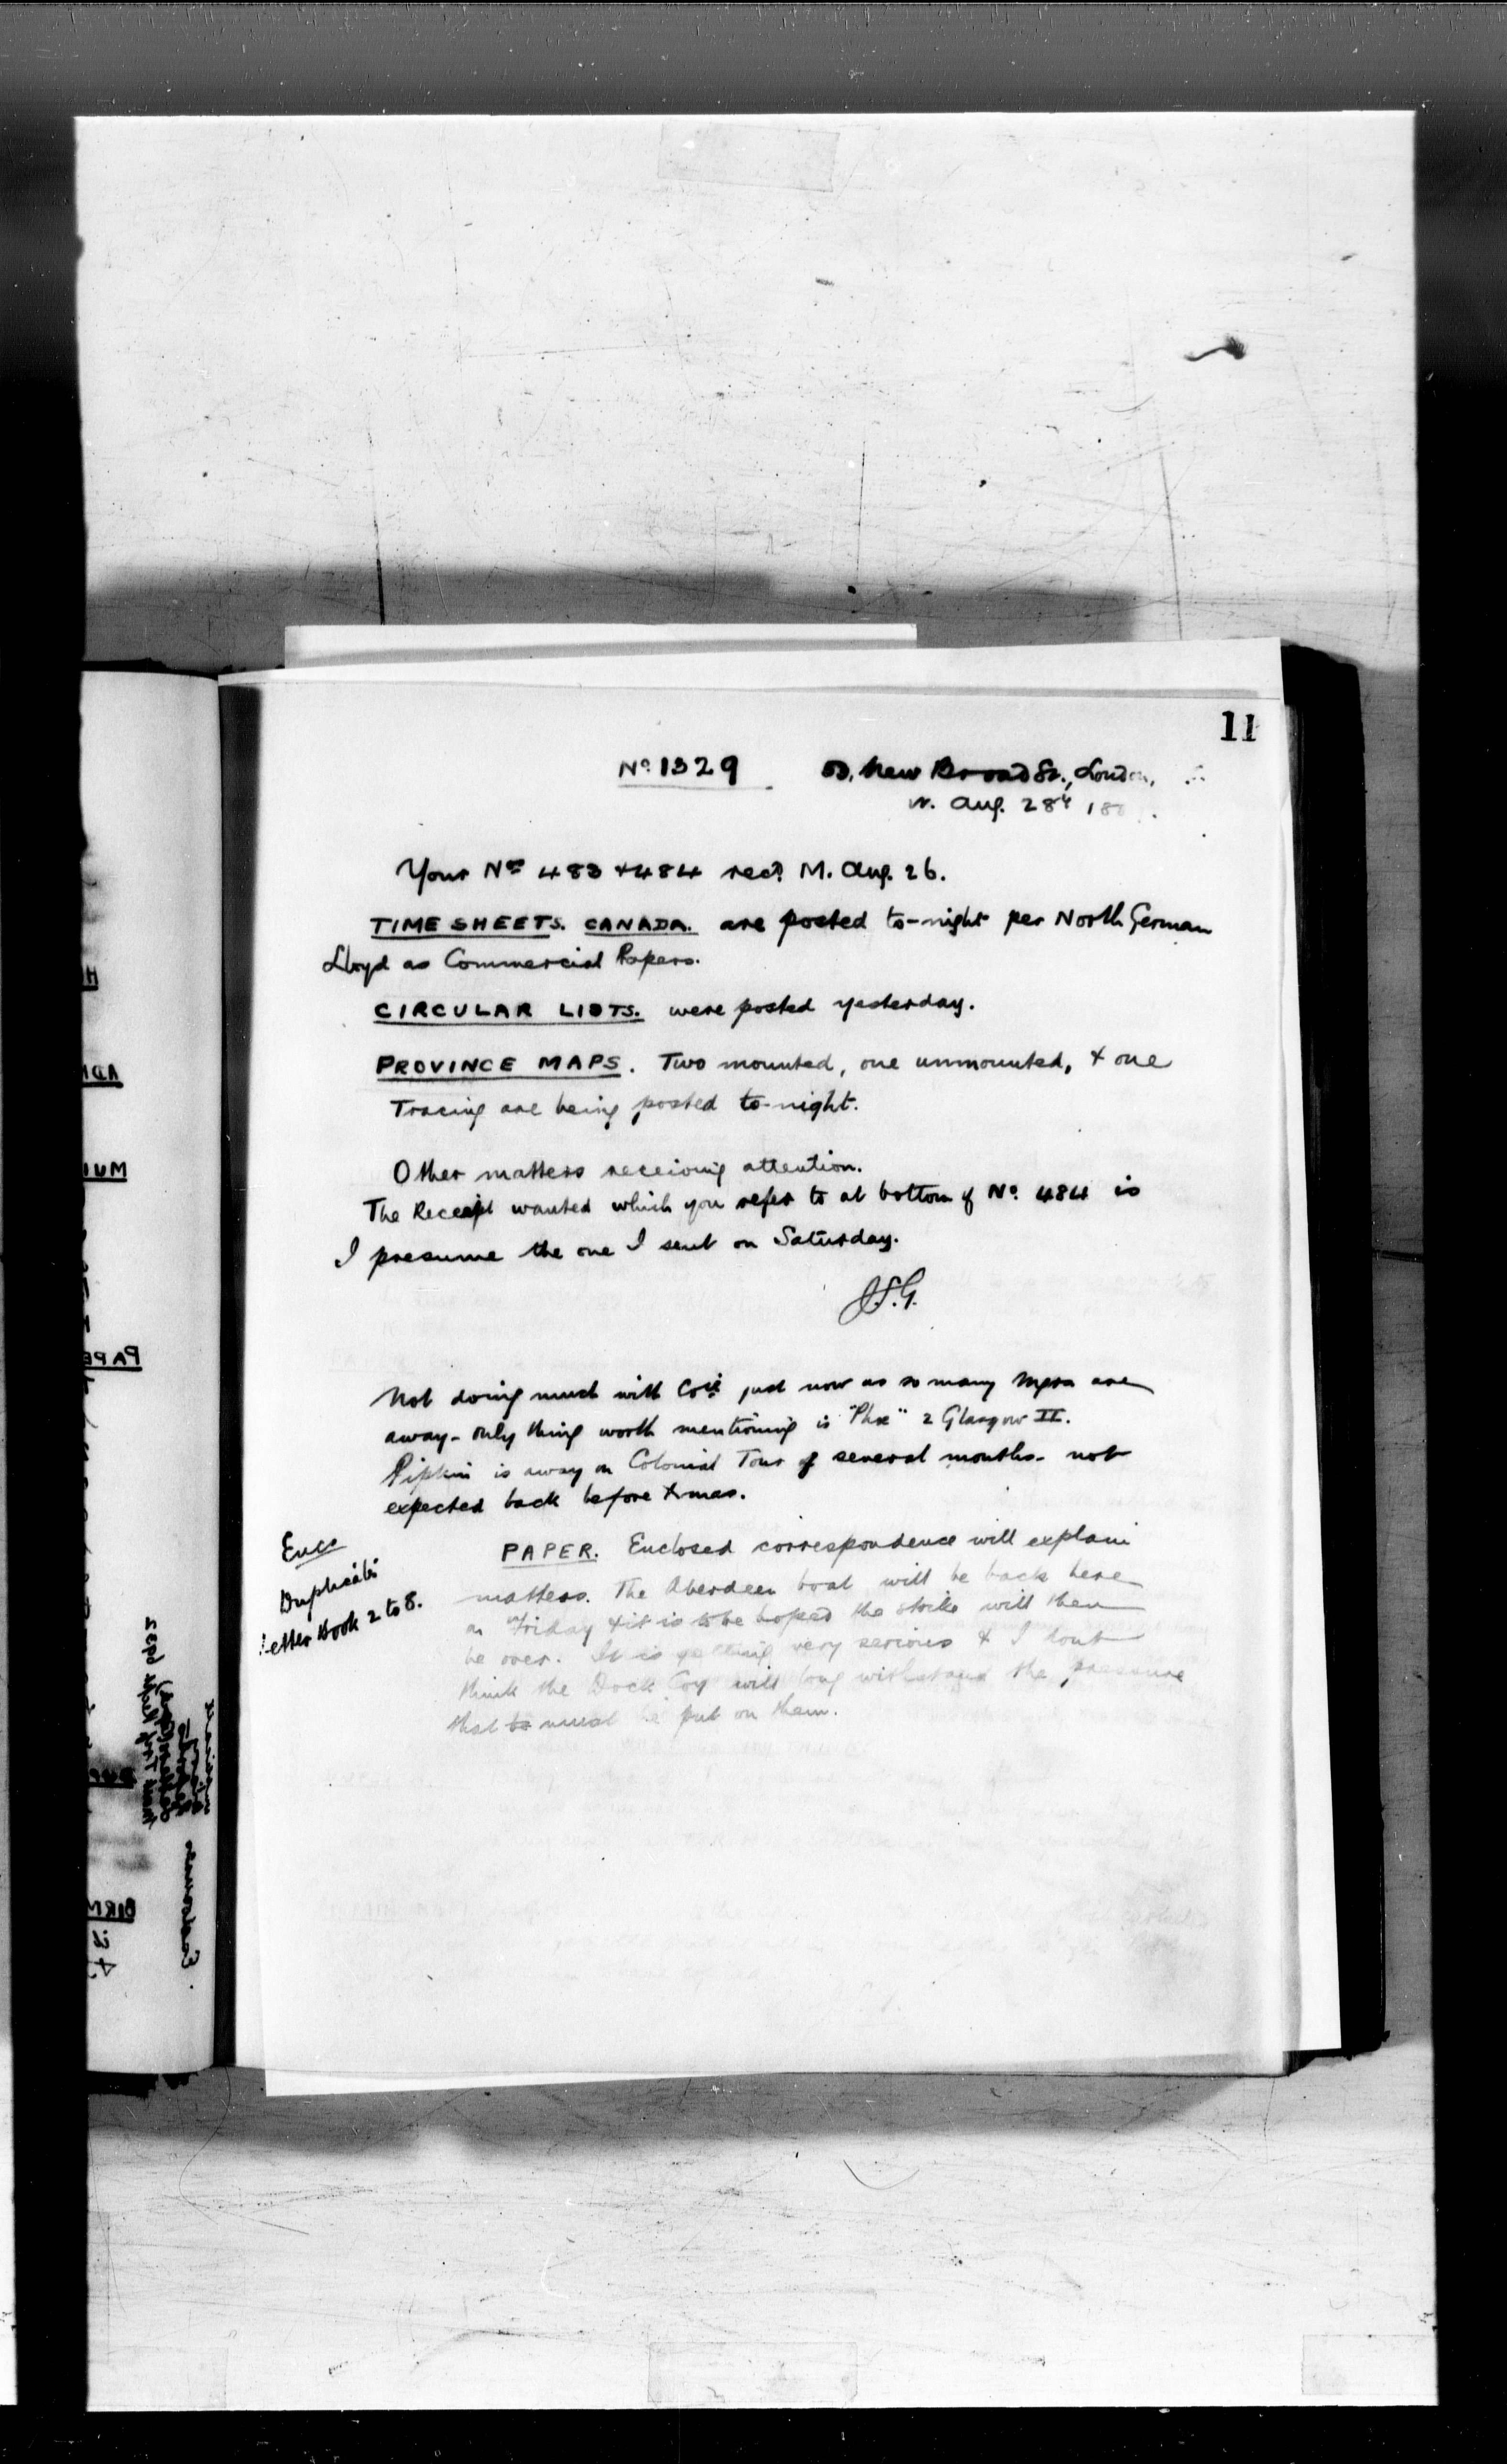 11
No. 1329 53, New Broad St., London,
W. Aug. 28th 188
Your Nos 483 & 484 recd M. Aug. 26.
TIME SHEETS. CANADA. are posted to-night per North German
Lloyd as Commercial Papers.
CIRCULAR LISTS. were posted yesterday.
PROVINCE MAPS. Two mounted, one unmounted, & one
Tracing are being posted to-night.
Other matters receiving attention.
The Receipt wanted which you refer to at bottom of No. 484 is
I presume the one I sent on Saturday.
J.S.G.
Not doing much with Cos. just now as so many Mgrs are
away - only thing worth mentioning is "Phx" 2 Glasgow II.
Pipkin is away on Colonial Tour of several months - not
expected back before Xmas.
Encs
Duplicate
Letter Book 2 to 8.
PAPER. Enclosed correspondence will explain
matters. The Aberdeen boat will be back here
on Friday & it is to be hoped the strike will then
be over. It is getting very serious & I dont
think the Dock Coy will long withstand the pressure
that to must be put on them.